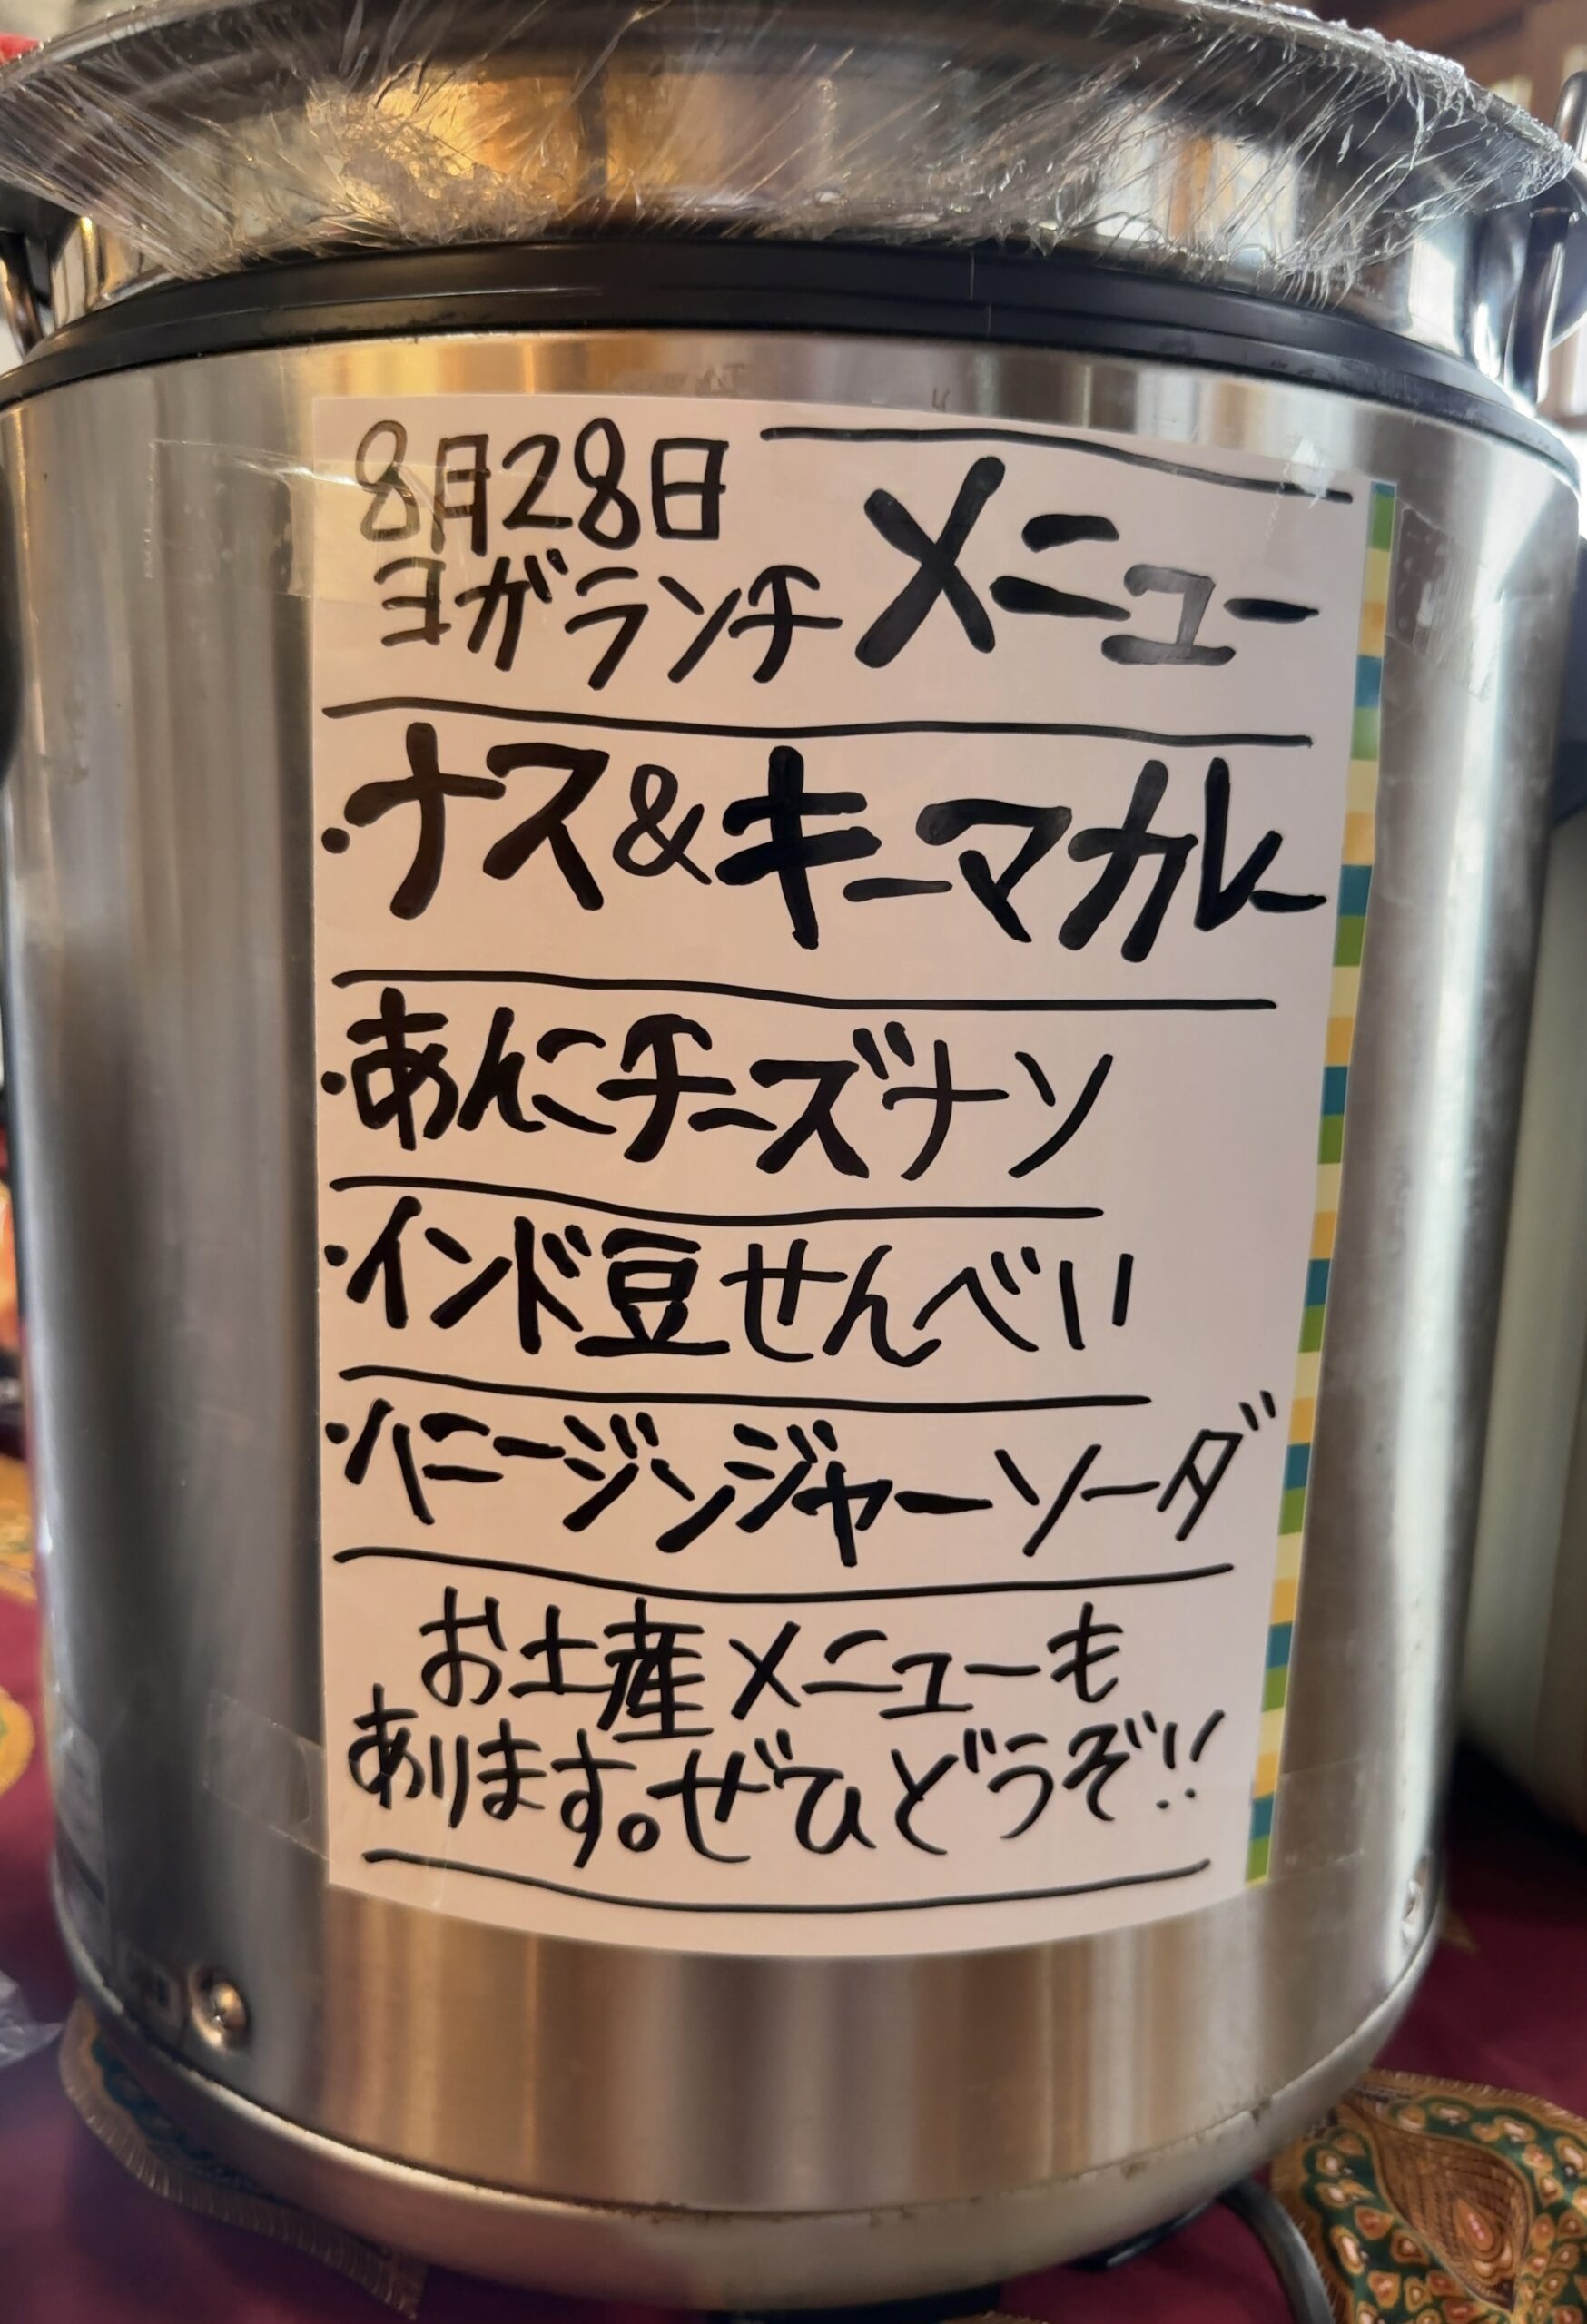 8月28日
ヨガランチ メニュー
・ナス&キーマカレー
・あんこチーズナン
・インド豆せんべい
・ハニージンジャーソーダ
お土産メニューも
あります。ぜひどうぞ!!